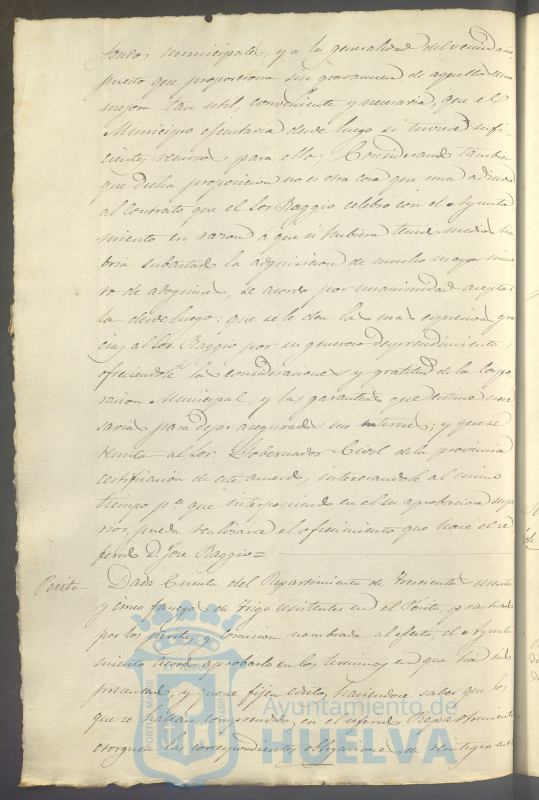 fondos municipales, y a la generalidad del vecindario,
puesto que proporciona sin gravamen de aquellos una
mejora tan util, conveniente y necesaria, que el
Municipio ejecutaria desde luego si tuviese sufi-
cientes recursos para ello; Considerando tambien
que dicha proposicion no es otra cosa que una adicion
al contrato que el Sor. Raggio celebro con el Ayunta
miento en razon a que si hubiera tenido medios ha
bria subastado la adquisicion de mucho mayor nume
ro de adoquines, se acordo por unanimidad aceptar
la desde luego: que se le den las mas espresivas gra
cias al Sor. Raggio por su generoso desprendimiento,
ofreciendole las consideraciones y gratitud de la Corpo
racion Municipal, y las garantias que estime nece
sarias para dejar asegurados sus intereses; y que se
remita al Sor. Gobernador Civil de la provincia
certificacion de este acuerdo, interesandole al mismo
tiempo pa. que interponiendo en el su aprobacion supe
rior, pueda realizarse el ofrecimiento que hace el re
ferido D. Jose Raggio=
Posito— Dada Cuenta del Repartimiento de Trescientas
y cinco fanegas de Trigo existentes en el Pósito, practicado
por los peritos y Comision nombrada al efecto, el Ayunta
miento acordo aprobarlo en los terminos en que ha sido
presentado, y que se fijen edictos haciendose saber que los
que se hallan comprendidos en el referido Repartimiento
otorguen las correspondientes obligaciones de reintegro
Ayuntamiento de
HUELVA